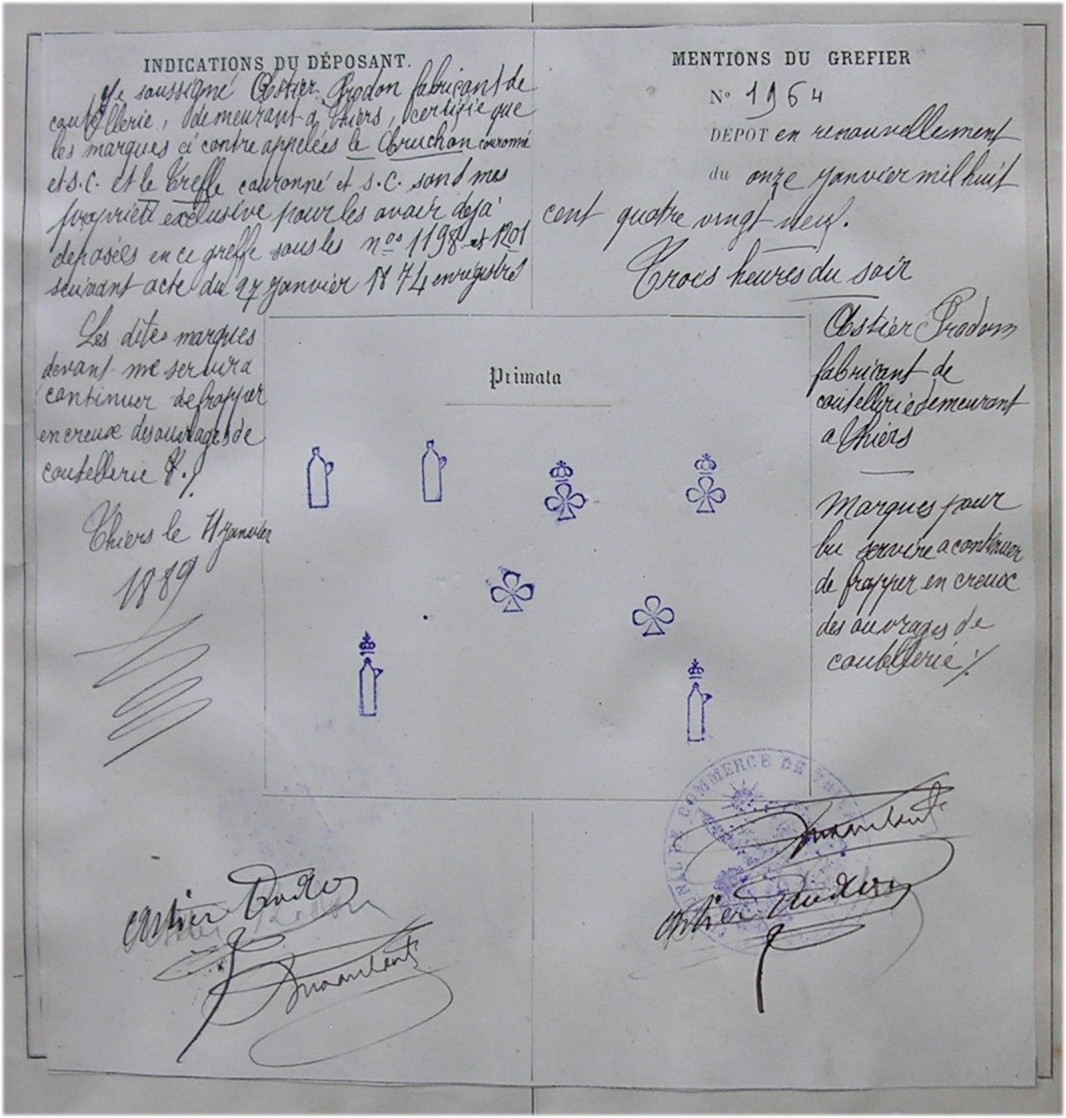 INDICATIONS DU DÉPOSANT.
Je soussigné Astier Prodon fabricant de
coutellerie, demeurant à Thiers, certifie que
les marques ci contre appelées le Cruchon couronné
et S.C. et le Trefle couronné et S.C. sont mes
propriété exclusive pour les avoir dejà
deposées en ce greffe sous les nos 1198 et 1201
suivant acte du 27 janvier 1874 enregistré
Les dites marques
devant me servir a
continuer de frapper
en creux des ouvrages de
coutellerie
Thiers le 11 janvier
1889
MENTIONS DU GREFIER
N° 1964
DÉPOT en renouvellement
du onze janvier mil huit
cent quatre vingt neuf.
Trois heures du soir
Astier Prodon
fabricant de
coutellerie demeurant
a Thiers
Marques pour
lui servire a continuer
de frapper en creux
des ouvrages de
coutellerie
Primata
COMMERCE DE
astier Prodon
astier Prodon